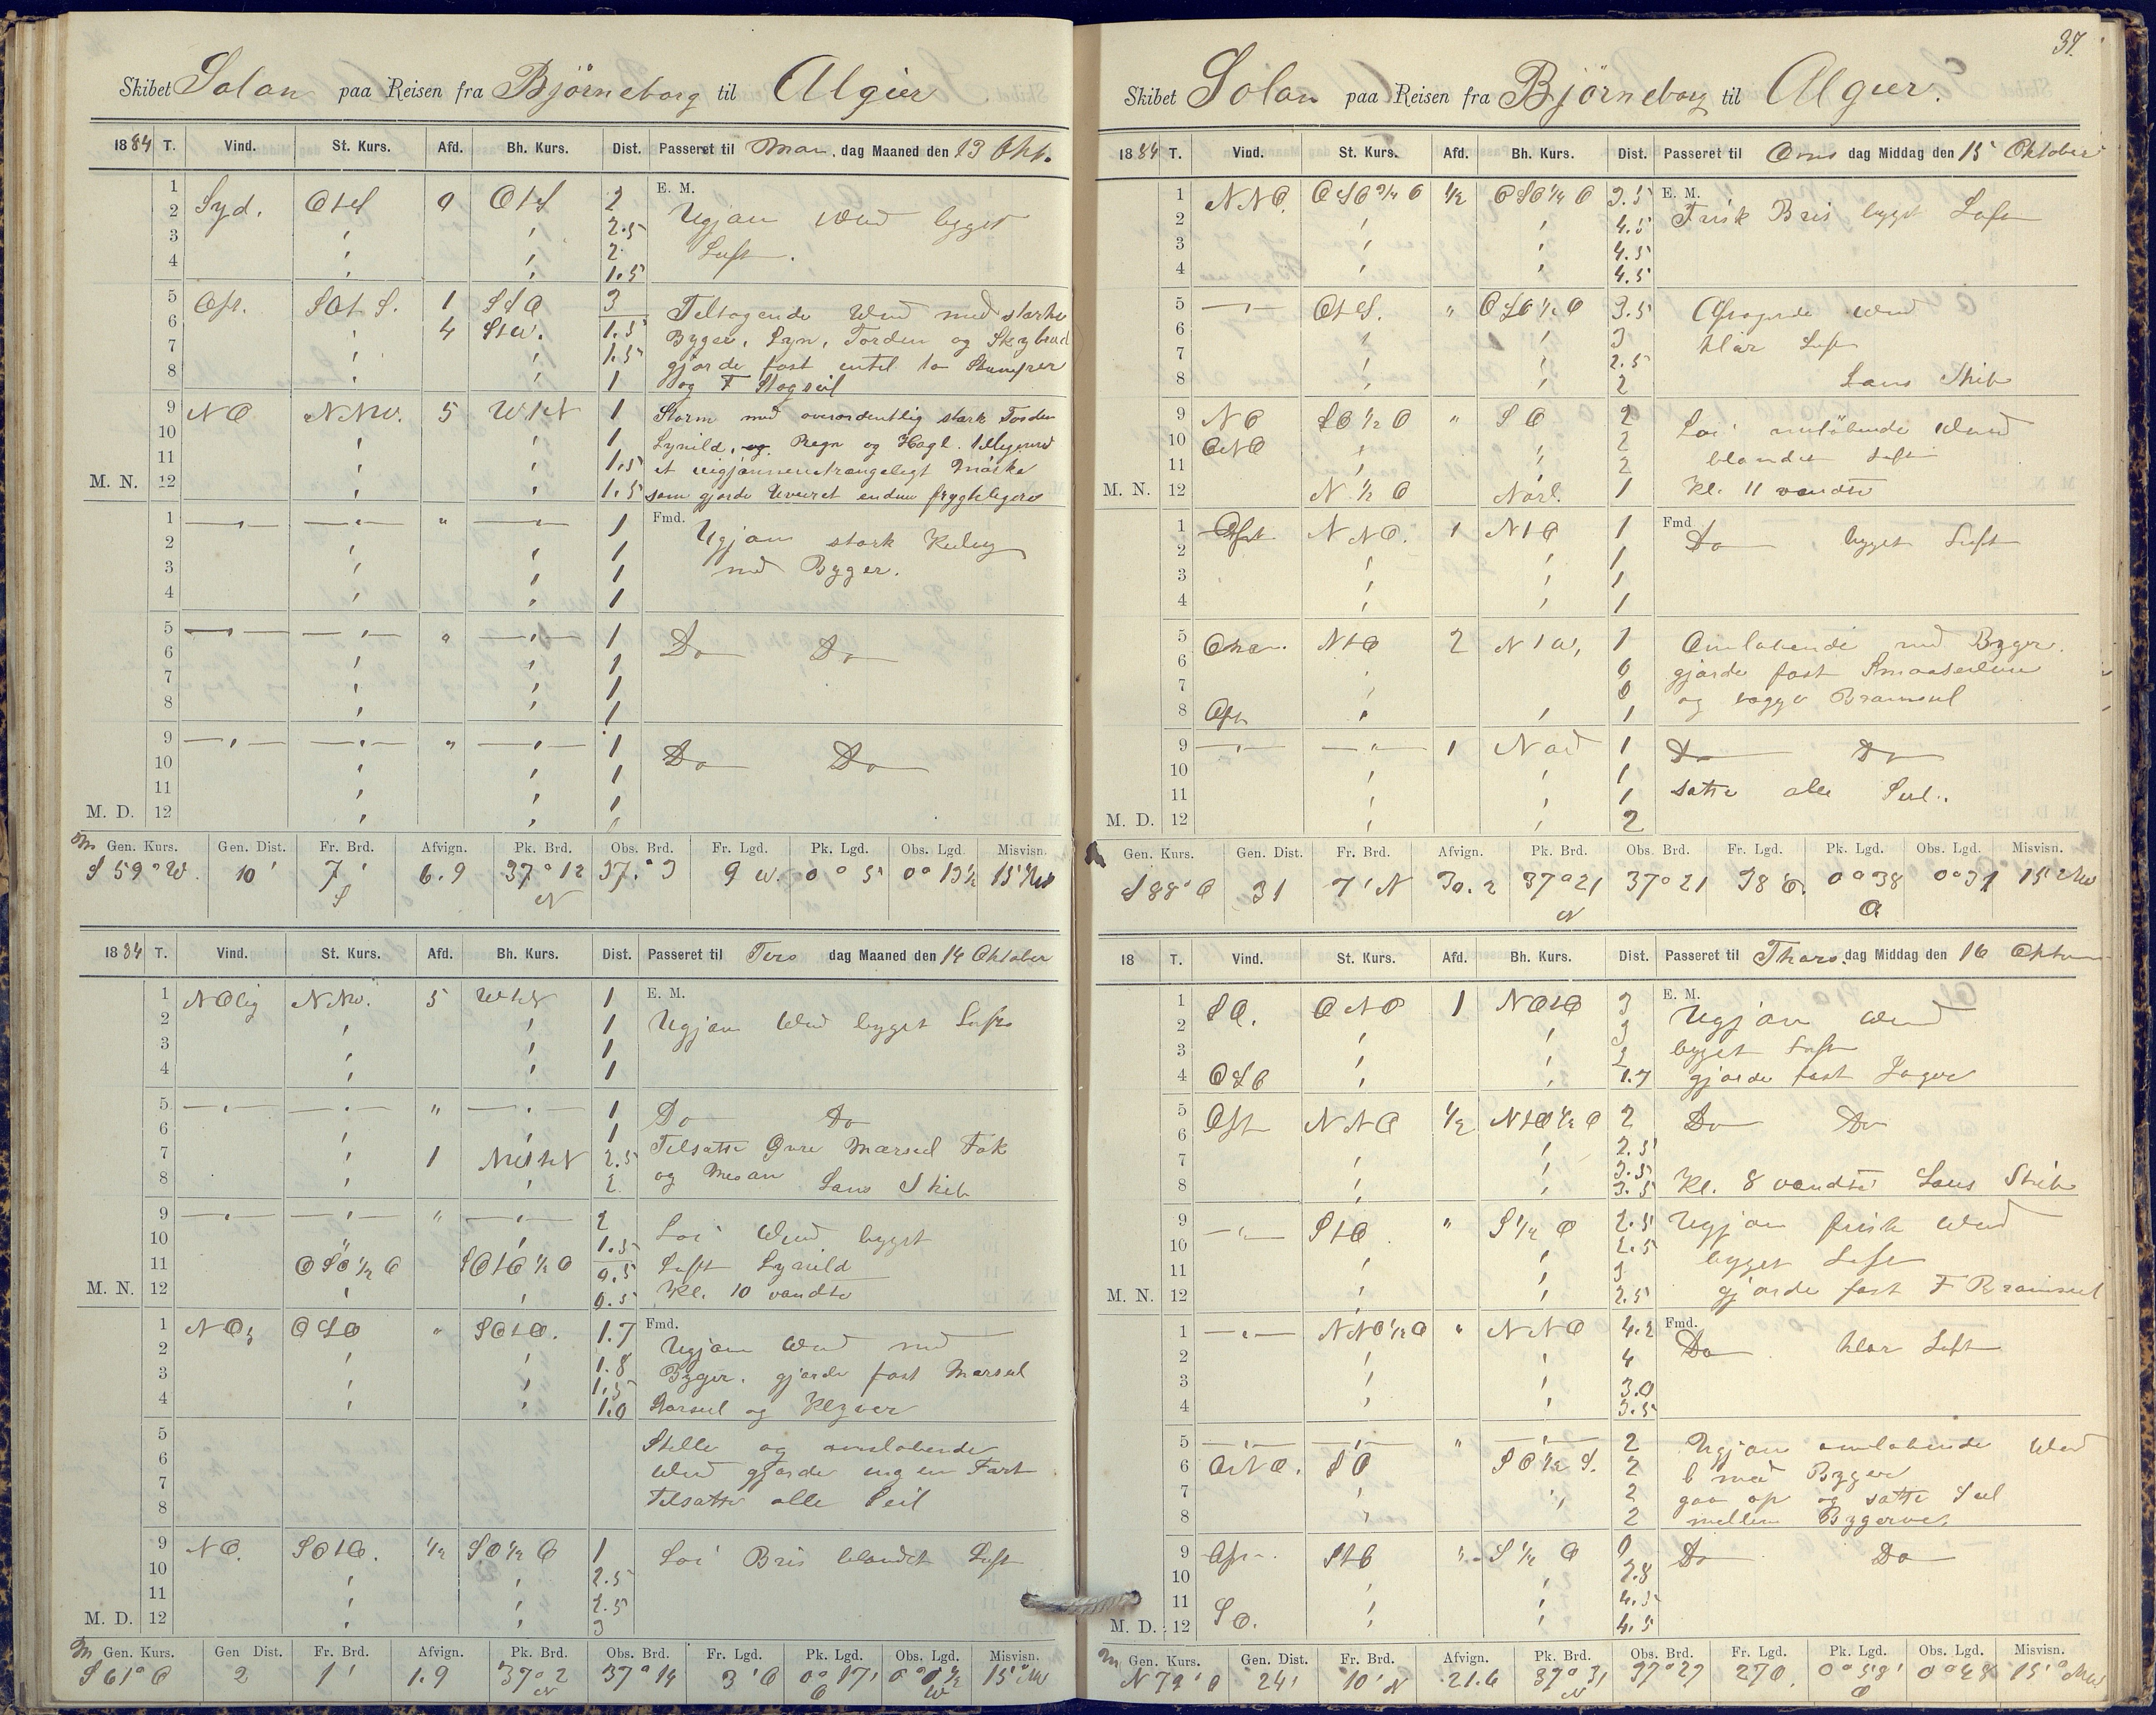 Skibet Solon paa Reisen fra Björneborg til Algier
1884 T. Vind. St. Kurs. Afd. Bh. Kurs. Dist. Passeret til Man. dag Maaned den 13 Okt.
1 Syd. OtS 0 OtS 2 E. M.
2 2.5 Ugjæn Wind bygget
3 2 Luft.
4 1.5
5 Ost. SOtS. 1 SSO 3 Tiltagende Wind med starke
6 4 StW. 1.5 Byger, Lyn, Torden og Skybrud
7 1.5 gjorde fast intil to Stumper
8 1 og F Stagseil
9 NO NNW. 5 WtN 1 Storm med overordentlig stærk Torden
10 1 Lynild, og Regn og Hagl.
11 1.5 et uigjennemtrængeligt Mörke
M. N. 12 1.5 som gjorde Uveiret endnu frygteligere
1 " 1 Fmd. Ugjæn stærk Kuling
2 1
3 1 med Byger.
4 1
5 " 1 Do Do
6 1
7 1
8 1
9 " 1 Do Do
10 1
11 1
M. D. 12
M Gen. Kurs. Gen. Dist. Fr. Brd. Afvign. Pk. Brd. Obs. Brd. Fr. Lgd. Pk. Lgd. Obs. Lgd. Misvisn.
S 59° W. 10' 7' 6.9 37°12 37.°3 9 W. 0° 5' 0° 13½ 15° NW
S N
1884 T. Vind. St. Kurs. Afd. Bh. Kurs. Dist. Passeret til Tirs dag Maaned den 14 Oktober
1 NOlig NNW. 5 WtN 1 E. M.
2 1 Ugjæn Wind bygget Luft
3 1
4 1
5 " 1 Do Do
6 1
7 1 2.5 Tilsatte Övre Mærseil Fok
8 2 og Mesan Lans Skib
9 " 2 Löi Wind bygget
10 1.5
11 OSO½O SOtO½O 0.5 Luft Lynild
M. N. 12 0.5 Kl. 10 vendte
1 NO OSO " SOtO. 1.7 Fmd.
2 1.8 Ugjæn Wind med
3 1.5 Byger. gjorde fast Mærseil
4 1.0 Storseil og Klyver
5 Stille og omlöbende
6 Wind gjorde ingen Fart
7 Tilsatte alle Seil
8
9 NO. SOtO. ½ SO½O 1 Löi Bris blandet Luft
10 2.5
11 2.5
M. D. 12 3
M Gen. Kurs. Gen Dist. Fr. Brd. Afvign. Pk. Brd. Obs. Brd. Fr. Lgd. Pk. Lgd. Obs. Lgd. Misvisn.
S 61° O 2 1' 1.9 37°2 37°14 3' O 0° 17' 15° NW
N O W
37.
Skibet Solon paa Reisen fra Björneborg til Algier.
1884 T. Vind. St. Kurs. Afd. Bh. Kurs. Dist. Passeret til Ons dag Middag den 15 Oktober
1 NNO. OSO¾O ½ OSO¼O 3.5 E. M.
2 4.5 Frisk Bris bygget Luft
3 4.5
4 4.5
5 OtS. " OSO½O 3.5 Aftagende Wind
6 3 klar Luft
7 2.5
8 2 Lans Skib
9 NO SO½O " SO 2 Löi omlöbende Wind
10 ONO 2
11 2 blandet Luft
M. N. 12 N ½ O Nord. 1 Kl. 11 vendte
1 Ost NNO. 1 NtO 1 Fmd Do bygget Luft
2 1
3 1
4 1
5 NtO 2 NtW, 1 Omlöbende med Byger.
6 0 gjorde fast Smaaseilene
7 0 og Bramseil
8 Ost 1
9 1 Nord 1 Do Do
10 1
11 1 satte alle Seil.
M. D. 12 2
Gen. Kurs. Gen. Dist. Fr. Brd. Afvign. Pk. Brd. Obs. Brd. Fr. Lgd. Pk. Lgd. Obs. Lgd. Misvisn.
S 88° O 31 7' N 30.2 37°21 37°21 38 O. 0°38 0°31 15° NW
N O
18 T. Vind. St. Kurs. Afd. Bh. Kurs. Dist. Passeret til Thors. dag Middag den 16 Oktober
1 SO. ONO 1 NOtO 3 E. M.
2 3 Ugjæn Wind
3 2 bygget Luft
4 OSO 1.7 gjorde fast Jager
5 Ost NNO ½ NtO½O 2 Do Do
6 2.5
7 3.5
8 3.5 Kl. 8 vendte Lans Skib
9 StO " S½O 2.5 Ugjæn frisk Wind
10 2.5
11 3 bygget Luft
M. N. 12 2.5 gjorde fast F Bramseil
1 NNO½O " NNO 4.2 Fmd.
2 4 Do klar Luft
3 3.0
4 3.5
5 " 2 Ugjæn omlöbende Wind
6 ONO. SO SO½S. 2 med Byger
7 2 op og satte Seil
8 2 mellem Bygerne
9 Ost. StO " S½O 0 Do Do
10 2.8
11 4.5
M. D. 12 SO. 4.5
M Gen. Kurs. Gen. Dist. Fr. Brd. Afvign. Pk. Brd. Obs. Brd. Fr. Lgd. Pk. Lgd. Obs. Lgd. Misvisn.
N 72° O 24' 10' N 21.6 37° 31 37°27 27O. 0°58' 0°48 15° NW
N O